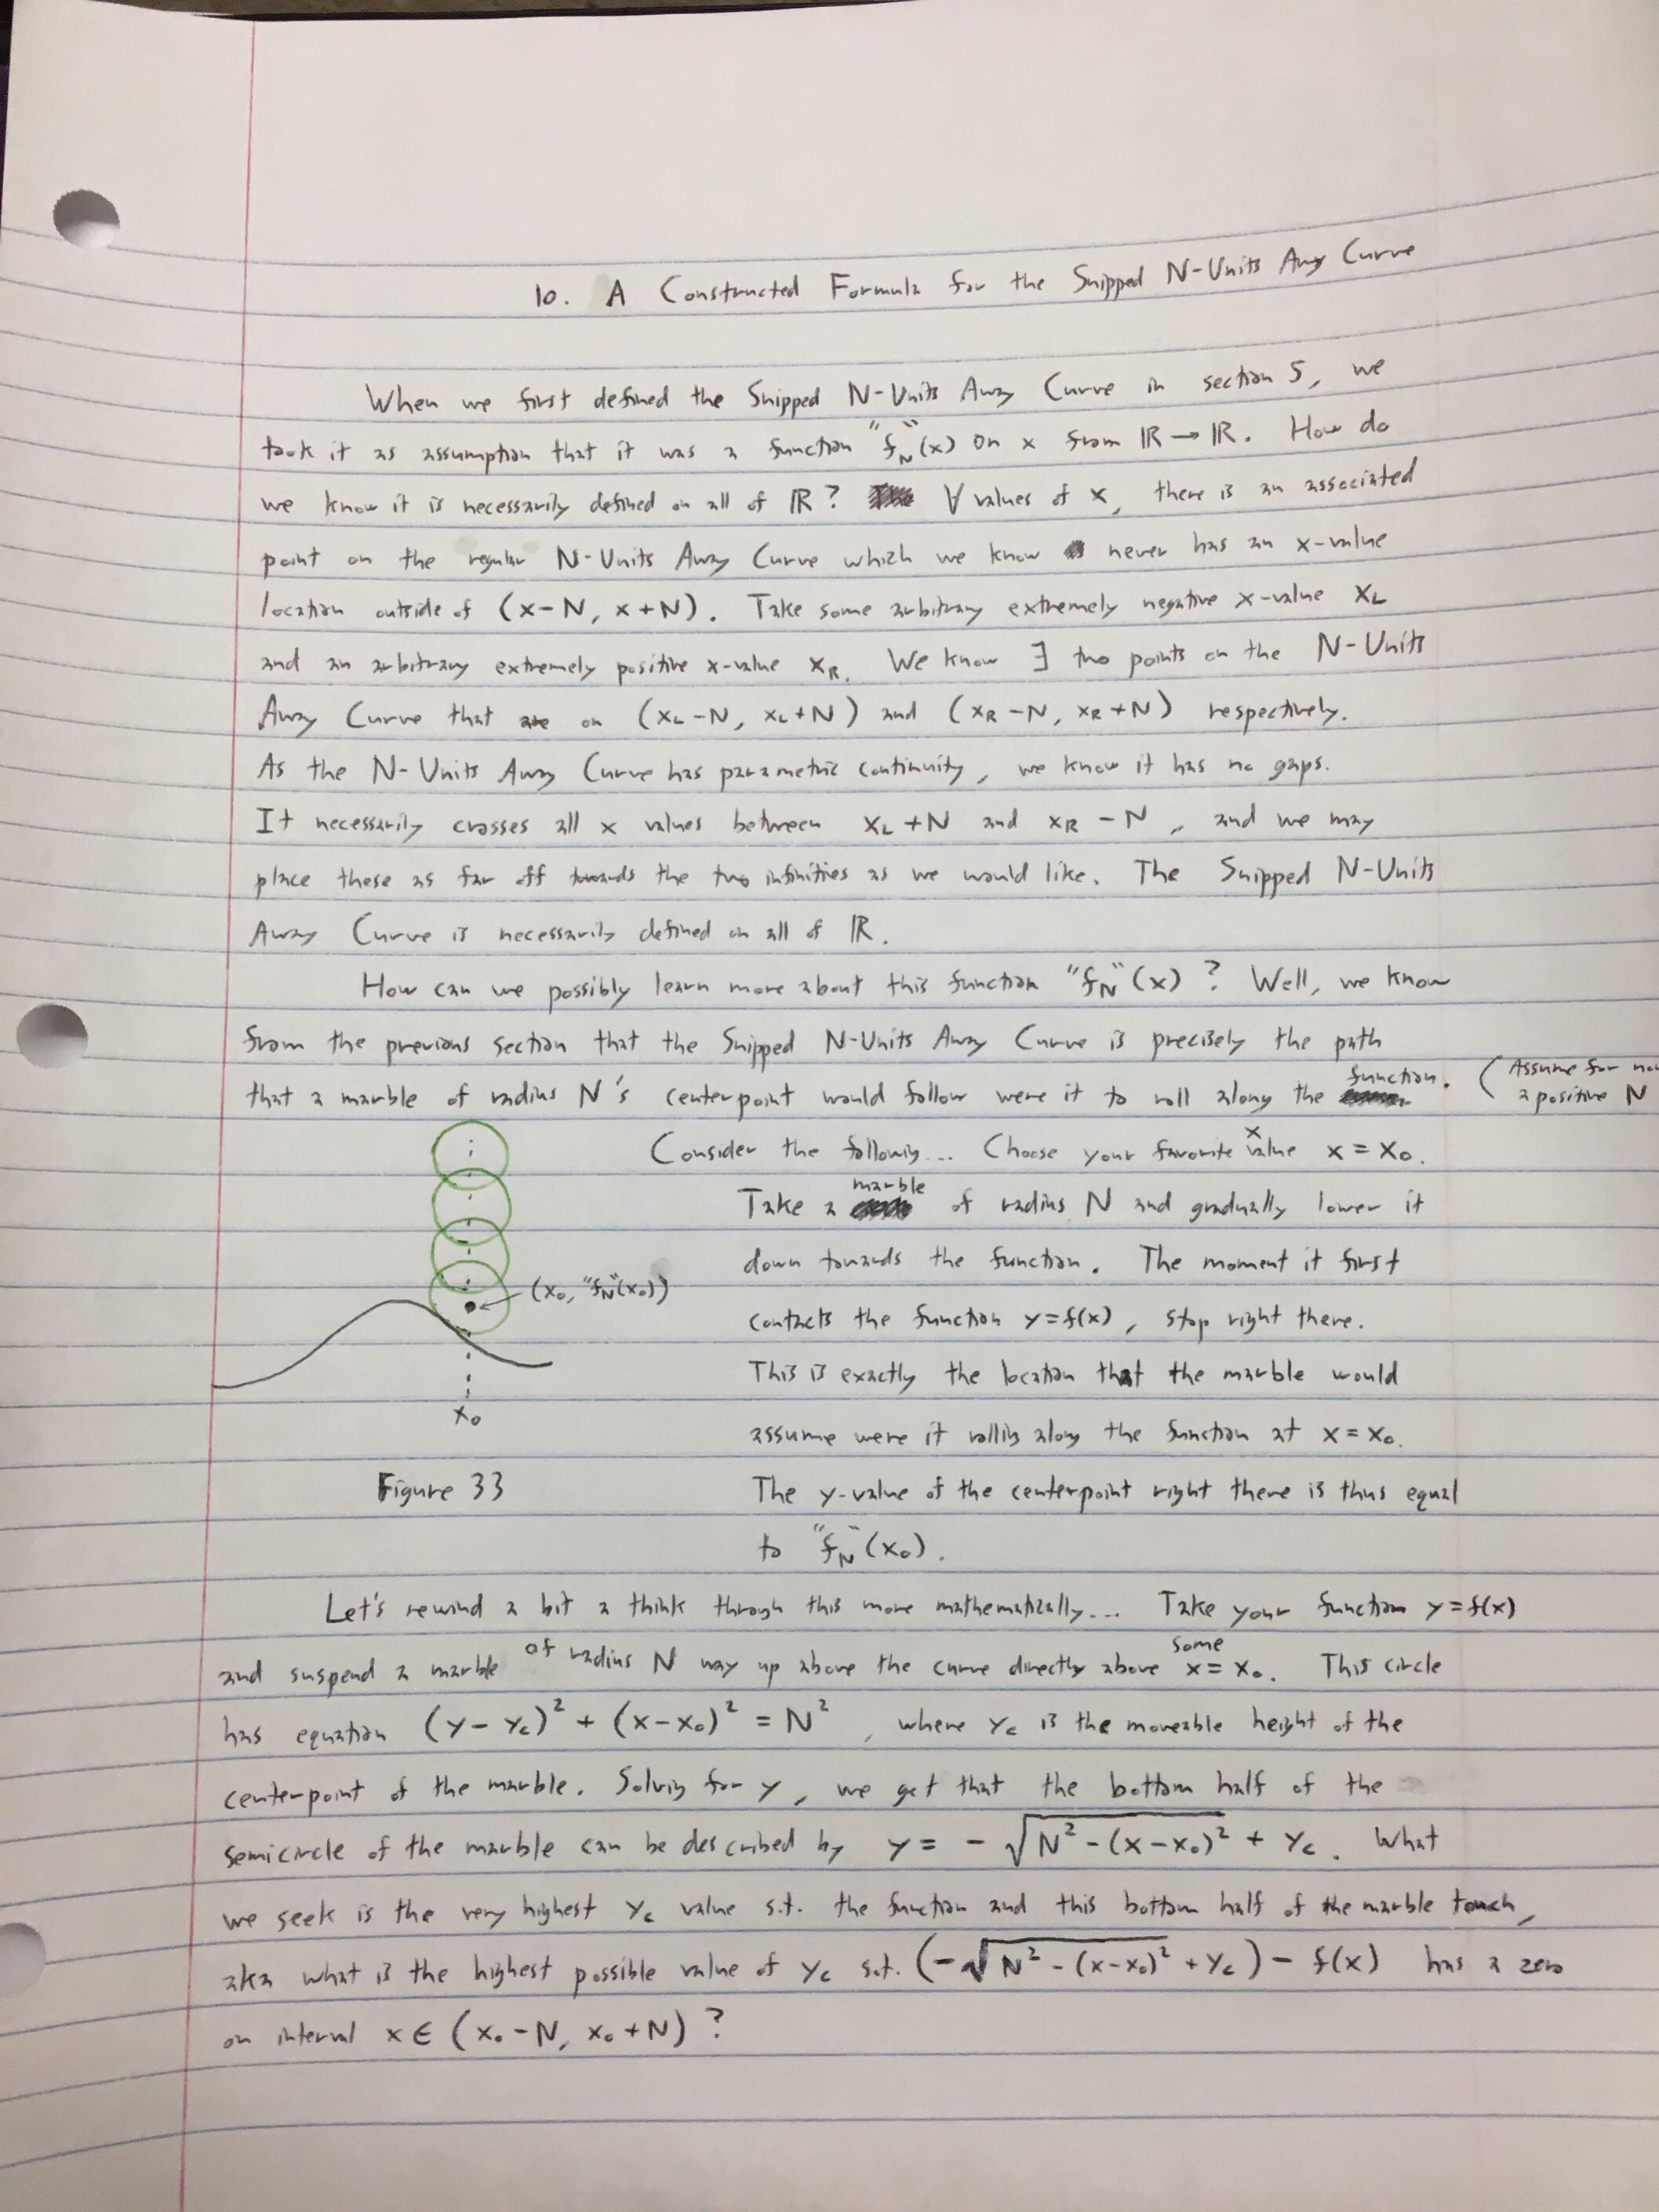 10. A Constructed Formula for the Snipped N-Units Away Curve
When we first defined the Snipped N-Units Away Curve in section 5, we
took it as assumption that it was a function "f_N"(x) on x from ℝ → ℝ. How do
we know it is necessarily defined on all of ℝ? ∀ values of x, there is an associated
point on the regular N-Units Away Curve which we know never has an x-value
location outside of (x-N, x+N). Take some arbitrary extremely negative x-value x_L
and an arbitrary extremely positive x-value x_R. We know ∃ two points on the N-Units
Away Curve that are on (x_L-N, x_L+N) and (x_R-N, x_R+N) respectively.
As the N-Units Away Curve has parametric continuity, we know it has no gaps.
It necessarily crosses all x values between x_L+N and x_R-N, and we may
place these as far off towards the two infinities as we would like. The Snipped N-Units
Away Curve is necessarily defined on all of ℝ.
How can we possibly learn more about this function "f_N"(x)? Well, we know
from the previous section that the Snipped N-Units Away Curve is precisely the path
that a marble of radius N's centerpoint would follow were it to roll along the function. (Assume for
a positive N
Consider the following... Choose your favorite x value x = x₀.
Take a marble of radius N and gradually lower it
down towards the function. The moment it first
(x₀, "f_N"(x₀))
contacts the function y=f(x), stop right there.
This is exactly the location that the marble would
x₀
assume were it rolling along the function at x = x₀.
Figure 33
The y-value of the centerpoint right there is thus equal
to "f_N"(x₀).
Let's rewind a bit a think through this more mathematically... Take your function y=f(x)
and suspend a marble of radius N way up above the curve directly above some x = x₀. This circle
has equation (y-y_c)² + (x-x₀)² = N², where y_c is the moveable height of the
centerpoint of the marble. Solving for y, we get that the bottom half of the
semicircle of the marble can be described by y = -√(N²-(x-x₀)²) + y_c. What
we seek is the very highest y_c value s.t. the function and this bottom half of the marble touch,
aka what is the highest possible value of y_c s.t. (-√(N²-(x-x₀)²) + y_c) - f(x) has a zero
on interval x ∈ (x₀-N, x₀+N)?